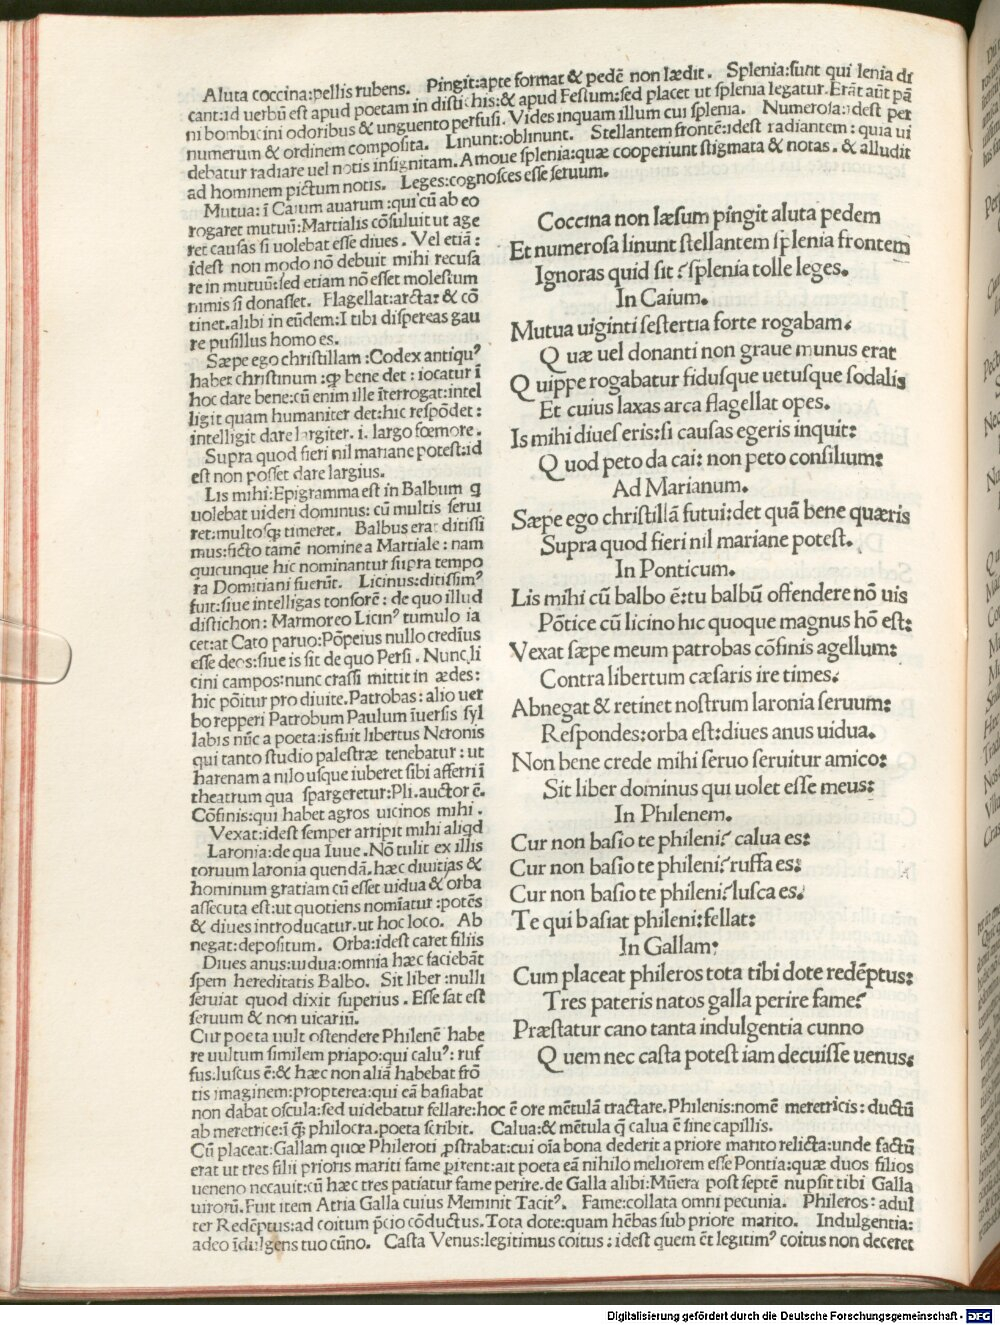 Aluta coccina:pellis rubens. Pingit:apte format & pedē non lædit. Splenia:sunt qui lenia di
cant:id uerbū est apud poetam in distichis:& apud Festum:sed placet ut splenia legatur. Erāt aūt pā
ni bombicini odoribus & unguento perfusi. Vides inquam illum cui splenia. Numerosa:idest per
numerum & ordinem composita. Linunt:oblinunt. Stellantem frontē:idest radiantem: quia ui
debatur radiare uel notis insignitam. Amoue splenia:quæ cooperiunt stigmata & notas. & alludit
ad hominem pictum notis. Leges:cognosces esse seruum.
Mutua: ī Caium auarum :qui cū ab eo
rogaret mutuū:Martialis cōsuluit ut age
ret causas si uolebat esse diues. Vel etiā:
idest non modo nō debuit mihi recusa
re in mutuū:sed etiam nō esset molestum
nimis si donasset. Flagellat:arctat & cō
tinet.alibi in eūdem:I tibi dispereas gau
re pusillus homo es.
Sæpe ego christillam :Codex antiquꝰ
habet christinum :ꝙ bene det : iocatur ī
hoc dare bene:cū enim ille īterrogat:intel
ligit quam humaniter det:hic respōdet:
intelligit dare largiter. i. largo fœmore.
Supra quod fieri nil mariane potest:id
est non posset dare largius.
Lis mihi:Epigramma est in Balbum q
uolebat uideri dominus: cū multis serui
ret:multosꝙ timeret. Balbus erat ditissi
mus:ficto tamē nomine a Martiale: nam
quicunque hic nominantur supra tempo
ra Domitiani fuerūt. Licinus:ditissimꝰ
fuit:siue intelligas tonsorē: de quo illud
distichon: Marmoreo Licinꝰ tumulo ia
cet:at Cato paruo:Pōpeius nullo credīus
esse deos:siue is sit de quo Persi. Nunc li
cini campos:nunc crassi mittit in ædes:
hic pōitur pro diuite. Patrobas: alio uer
bo repperi Patrobum Paulum īuersis syl
labis nūc a poeta:is fuit libertus Neronis
qui tanto studio palestræ tenebatur: ut
harenam a nilo usque iuberet sibi afferri ī
theatrum qua spargeretur:Pli. auctor ē.
Cōfinis:qui habet agros uicinos mihi.
Vexat:idest semper arripit mihi aliqd
Laronia:de qua Iuue. Nō tulit ex illis
toruum laronia quendā. hæc diuitias &
hominum gratiam cū esset uidua & orba
assecuta est:ut quotiens nomīatur :potēs
& diues introducatur. ut hoc loco. Ab
negat:depositum. Orba:idest caret filiis
Diues anus:uidua:omnia hæc faciebāt
spem hereditatis Balbo. Sit liber :nulli
seruiat quod dixit superius. Esse sat est
seruum & non uicariū.
Cur poeta uult ostendere Philenē habe
re uultum similem priapo:qui caluꝰ: ruf
fus:luscus ē:& hæc non aliā habebat frō
tis imaginem:propterea:qui eā basiabat
non dabat oscula:sed uidebatur fellare:hoc ē ore mētulā tractare. Philenis:nomē meretricis: ductū
ab meretrice:ī q̄: philocra.poeta scribit. Calua:& mētula q̄ calua ē sine capillis.
Cū placeat:Gallam quœ Phileroti ꝓstrabat:cui oīa bona dederit a priore marito relicta:unde factū
erat ut tres filii prioris mariti fame ꝑirent:ait poeta eā nihilo meliorem esse Pontia:quæ duos filios
ueneno necauit:cū hæc tres patiatur fame perire. de Galla alibi:Mūera post septē nupsit tibi Galla
uirorū. Fuit item Atria Galla cuius Meminit Tacitꝰ. Fame:collata omni pecunia. Phileros: adul
ter Redēptus:ad coitum p̄cio cōductus. Tota dote:quam hēbas sub priore marito. Indulgentia:
adeo īdulgens tuo cūno. Casta Venus:legitimus coitus : idest quem ēt legitimꝰ coitus non deceret
Coccina non læsum pingit aluta pedem
Et numerosa linunt stellantem splenia frontem
Ignoras quid sit? splenia tolle leges.
In Caium.
Mutua uiginti sestertia forte rogabam.
Quæ uel donanti non graue munus erat
Quippe rogabatur fidusque uetusque sodalis
Et cuius laxas arca flagellat opes.
Is mihi diues eris:si causas egeris inquit:
Quod peto da cai: non peto consilium:
Ad Marianum.
Sæpe ego christillā futui:det quā bene quæris
Supra quod fieri nil mariane potest.
In Ponticum.
Lis mihi cū balbo ē:tu balbū offendere nō uis
Pōtice cū licino hic quoque magnus hō est:
Vexat sæpe meum patrobas cōfinis agellum:
Contra libertum cæsaris ire times.
Abnegat & retinet nostrum laronia seruum:
Respondes:orba est:diues anus uidua.
Non bene crede mihi seruo seruitur amico:
Sit liber dominus qui uolet esse meus:
In Philenem.
Cur non basio te phileni? calua es:
Cur non basio te phileni? ruffa es:
Cur non basio te phileni? lusca es.
Te qui basiat phileni:fellat:
In Gallam:
Cum placeat phileros tota tibi dote redēptus:
Tres pateris natos galla perire fame?
Præstatur cano tanta indulgentia cunno
Quem nec casta potest iam decuisse uenus:
Digitalisierung gefördert durch die Deutsche Forschungsgemeinschaft - DFG